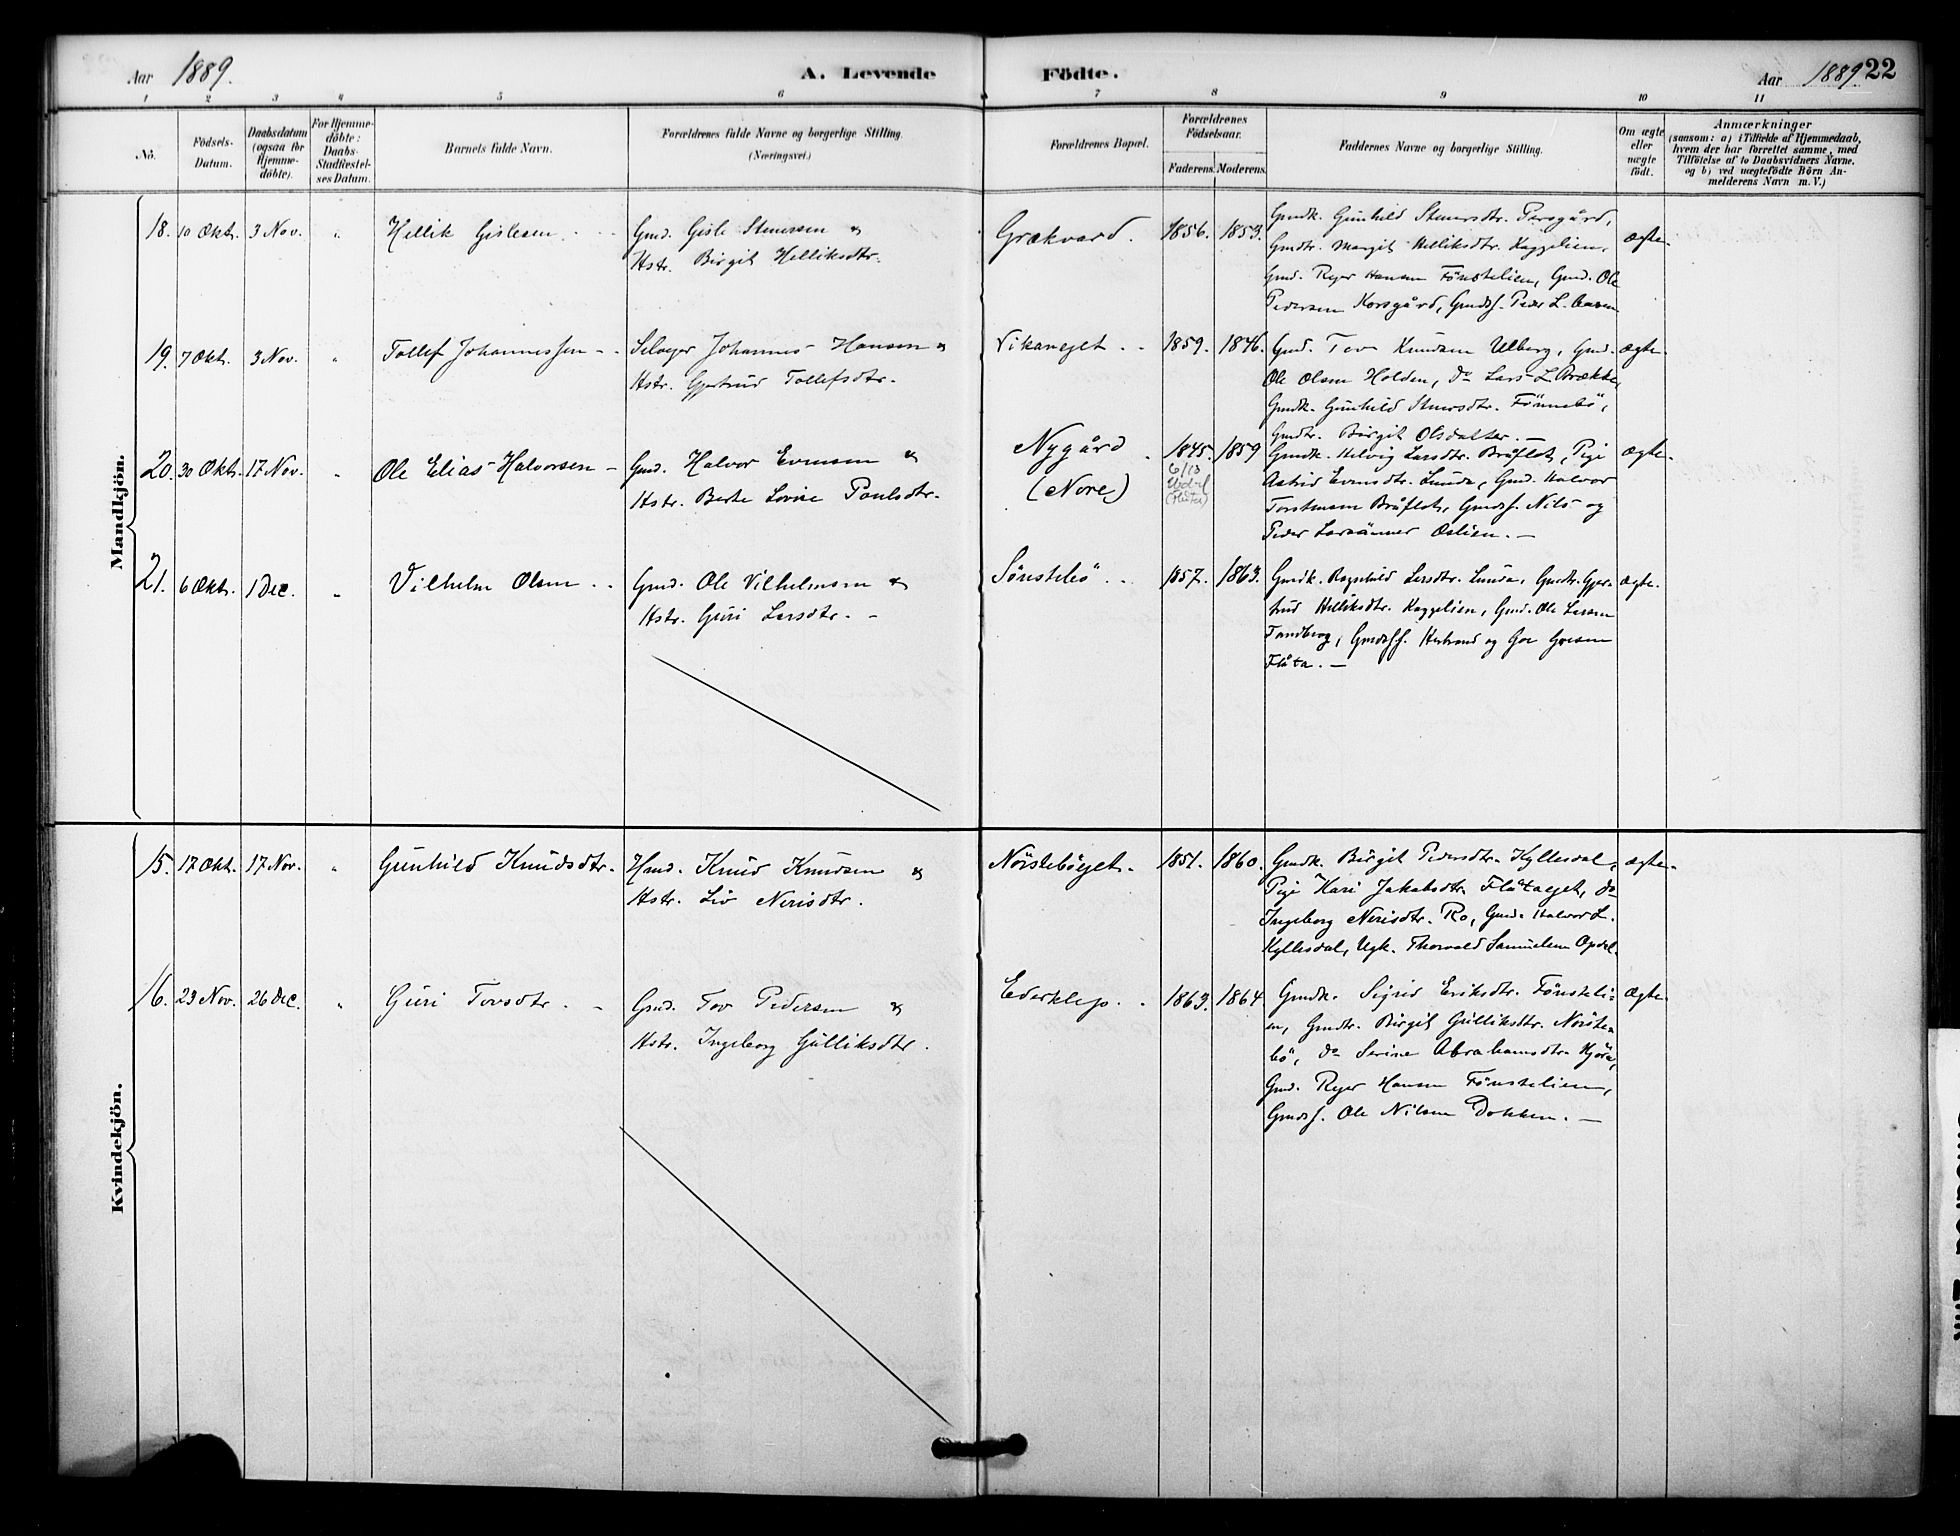 Aar 1889. A. Levende Fødte. Aar 1889. 22
1 2 3 4 5 6 7 8 9 10 11
No.
Fødsels-
Datum.
Daabsdatum
(ogsaa for
Hjemme-
døbte).
For Hjemme-
døbte:
Daabs-
Stadfæstel-
ses Datum.
Barnets fulde Navn.
Forældrenes fulde Navne og borgerlige Stilling.
(Næringsvei.)
Forældrenes Bopæl.
Forældrenes
Fødselsaar.
Faderens. Moderens.
Faddernes Navne og borgerlige Stilling.
Om ægte
eller
uægte
født.
Anmærkninger
(saasom: a) i Tilfælde af Hjemmedaab,
hvem der har forrettet samme, med
Tilføielse af to Daabsvidners Navne.
og b) ved uægtefødte Børn An-
melderens Navn m. V.)
Mandkjön.
18. 10 Okt. 3 Nov. " Hellik Gislesen
Gmd. Gisle Stenersen &
Hstr. Birgit Helliksdtr.
Grækvard. 1856. 1853.
Gmdk. Gunhild Stenersdtr. Persgård,
Gmdtr. Margit Helliksdtr. Kaggelien,
Gmd. Reyer Hansen Fönstelien, Gmd. Ole
Pedersen Korsgård, Gmdsf. Peder L.
ægte
19. 7 Okt. 3 Nov. " Tollef Johannessen
Selveier Johannes Hansen &
Hstr. Gjertrud Tollefsdtr.
Vikaneget 1859. 1846.
Gmd. Tov Knudsen Ulberg, Gmd.
Ole Olsen Holden, do Lars L. Brække,
Gmdk. Gunhild Stenersdtr. Fönnebö,
Gmdtr. Birgit Olsdatter. —
ægte
20. 30 Okt. 17 Nov. " Ole Elias Halvorsen
Gmd. Halvor Evensen &
Hstr. Berte Lovise Poulsdtr.
Nygård
(Nore)
1845. 1859
6/13
Gmdk. Helvig Larsdtr. Bråflot, Pige
Astrid Evensdtr. Lunde, Gmd. Halvor
Torstensen Bråflot, Gmdsf. Nils og
Peder Larssönner Oslien. —
ægte
21. 6 Okt. 1 Dec. " Vilhelm Olsen
Gmd. Ole Vilhelmsen &
Hstr. Guri Larsdtr. -
Sönstebö 1857. 1863.
Gmdk. Ragnhild Larsdtr. Lunde, Gmdtr. Gjer-
trud Helliksdtr. Kaggelien, Gmd. Ole Larsen
Tandberg, Gmdsf. Herbrand og Goe Goesen
Flåta. —
ægte
Kvindekjön.
15. 17 Okt. 17 Nov. " Gunhild Knudsdtr.
Hmd. Knud Knudsen &
Hstr. Liv Nerisdtr.
Nörsteböeget. 1851. 1860.
Gmdk. Birgit Pedersdtr. Kyllesdal,
Pige Kari Jakobsdtr. Flåtaeget, do
Ingeborg Nerisdtr. Ro, Gmd. Halvor L.
Kyllesdal, Ugk. Thorvald Samuelsen Opdal.
ægte
16. 23 Nov. 26 Dec. " Guri Tovsdtr.
Gmd. Tov Pedersen &
Hstr. Ingeborg Gulliksdtr.
Ederklep. 1863. 1864
Gmdk. Sigrid Eriksdtr. Fönsteli-
en, Gmdtr. Birgit Gulliksdtr. Nörste-
bö, do Serine Abrahamsdtr. Kjöra,
Gmd. Reyer Hansen Fönstelien,
Gmdsf. Ole Nilsen Dokken. —
Ægte